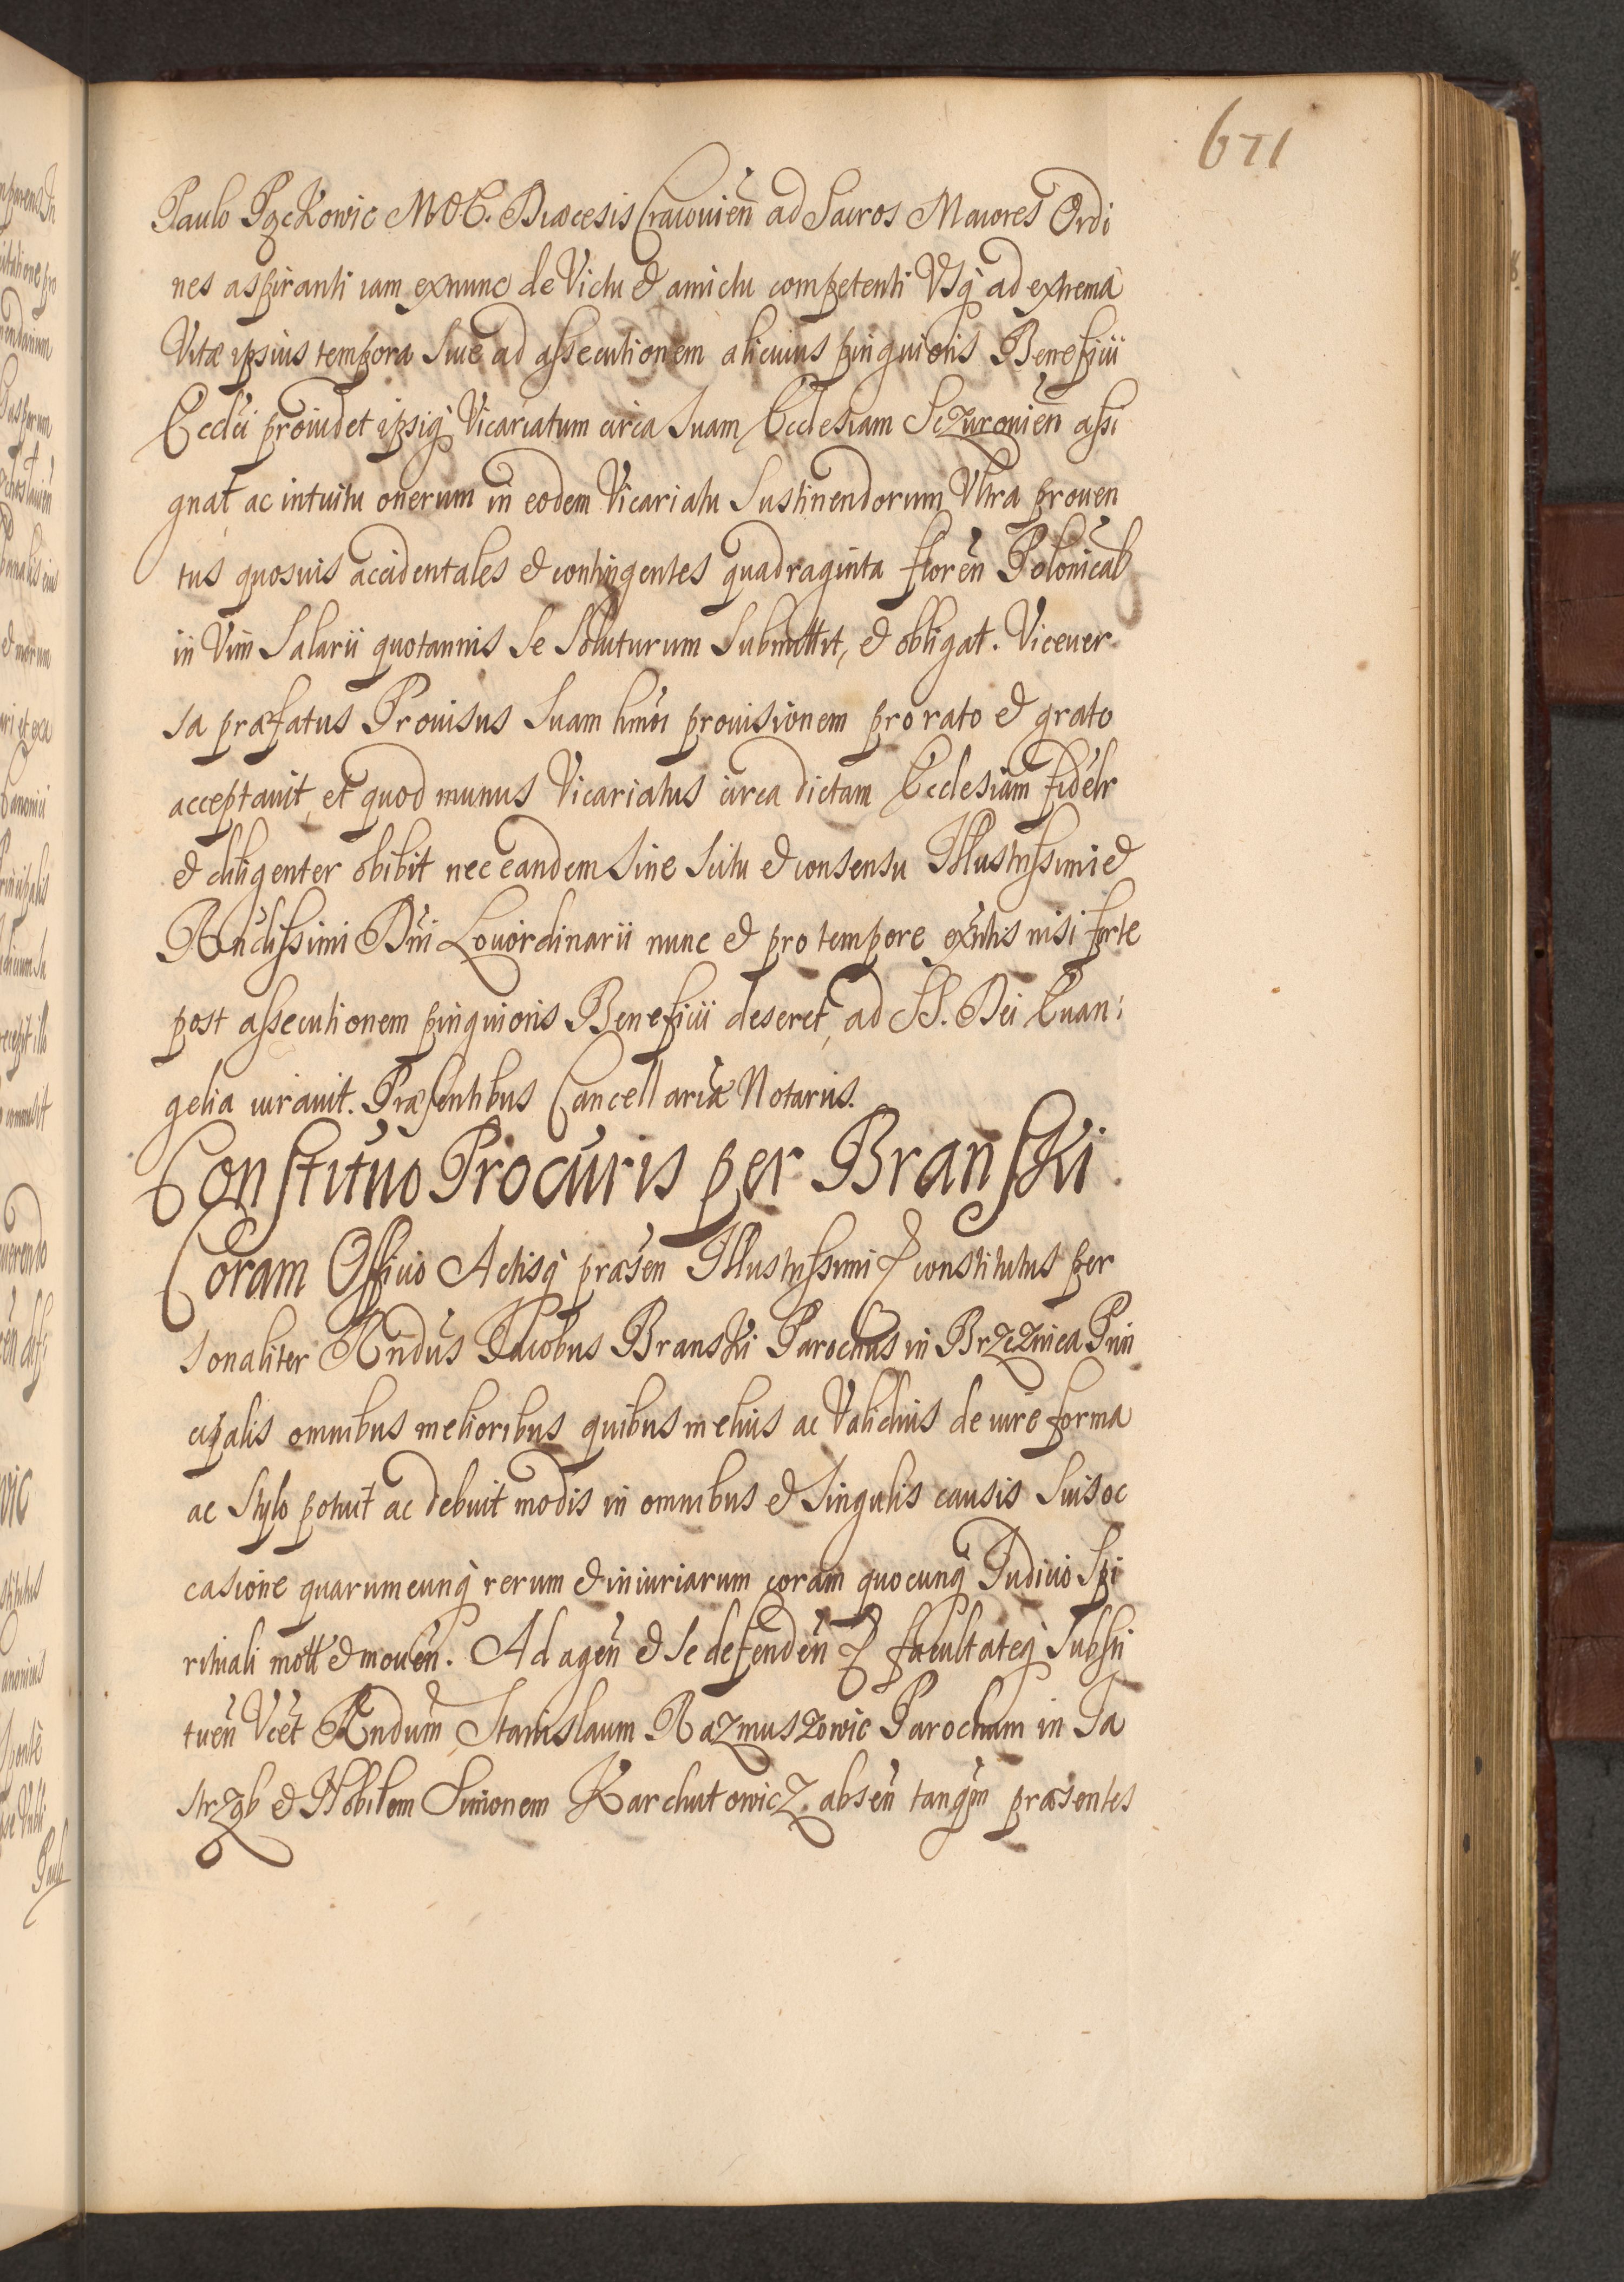 671
Paulo Pączkowic M.O.C. Diæcesis Cracouień ad Sacros Maiores Ordi
nes aspiranti iam exnunc de Victu & amictu competenti Vsq́ ad extrema
Vitæ ipsius tempora Siue ad assecutionem alicuius pinguioris Beneficii
Eccĺci prouidet ipsiq́ Vicariatum circa Suam Ecclesiam Sczurouień assi
gnat ac intuitu onerum in eodem Vicariatu Sustinendorum Vltra prouen
tus quosuis accidentales & contingentes quadraginta floreń Polonical
in Vim Salarii quotannis Se Soluturum Submittit, & obligat. Viceuer
sa præfatus Prouisus Suam hmoi prouisionem pro rato & grato
acceptauit, et quod munus Vicariatus circa dictam Ecclesiam fidelr
& diligenter obibit nec eandem Sine Scitu & consensu Illustrissimi &
Rndissimi Dni Loci ordinarii nunc & pro tempore exntis nisi forte
post assecutionem pinguioris Beneficii deseret, ad SS. Dei Euan
gelia iurauit. Præsentibus Cancellariæ Notariis.
Constituo Procuris per Branski
Coram Officio Actisq́ præsen Illustrissimi & constitutus per
sonaliter Rndus Iacobus Branski Parochus in Brzeznica Prin
cipalis omnibus melioribus quibus melius ac Validius de iure forma
ac Stylo potuit ac debuit modis in omnibus & Singulis causis Suis oc
casione quarumcunq́ rerum & iniuriarum coram quocunq́ Iudicio Spi
rituali mott & mouen. Ad agen & Se defenden & facultateq́ Substi
tuen Vcet Rndum Stanislaum Razmuszowic Parochum in Ja
strząb & Nobilem Simonem Karchutowicz absen tanqm præsentes